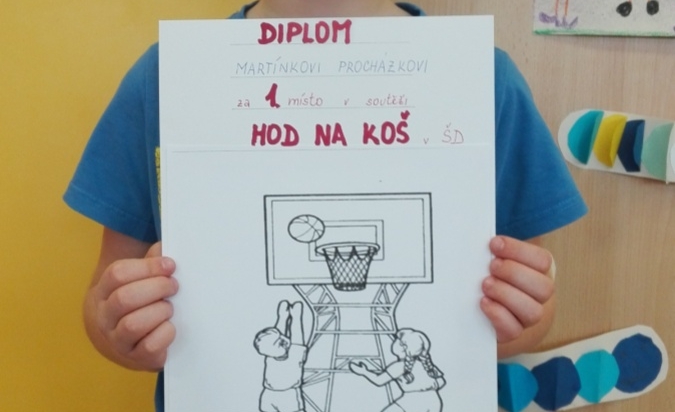 DIPLOM
MARTÍNKOVI PROCHÁZKOVI
za 1 místo v soutěži
HOD NA KOŠ v ŠD